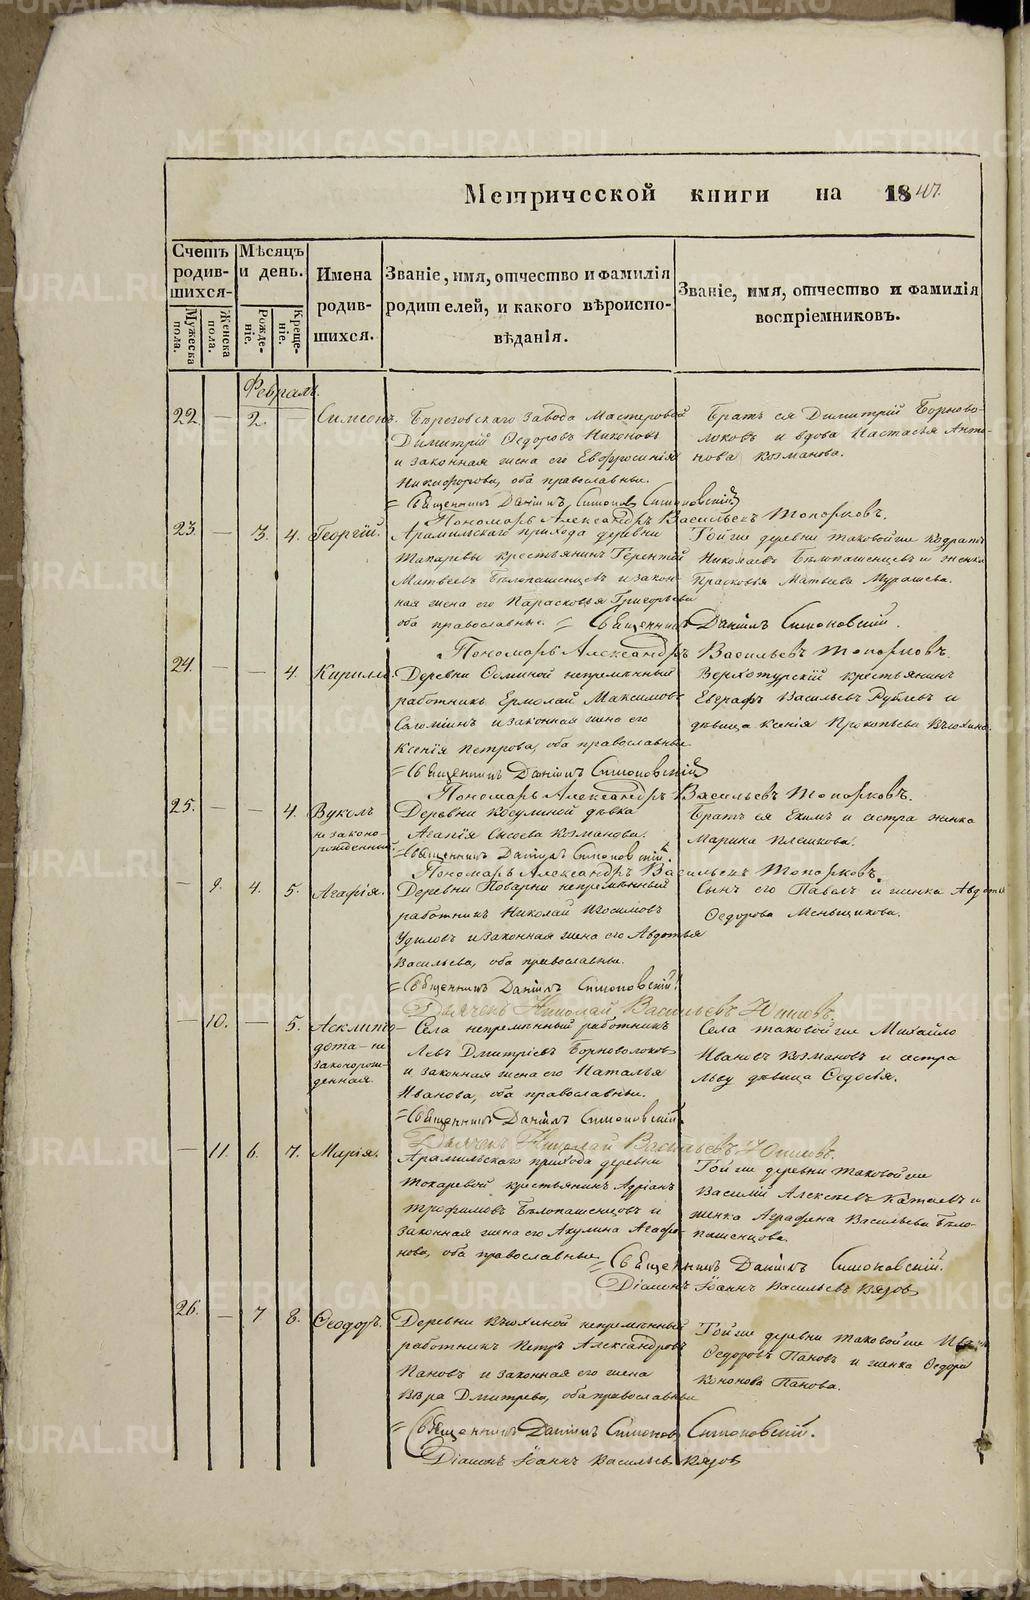 METRIKI.GASO-URAL.RU
Метрической книги на 1847.
Счетъ родившихся.
Мѣсяцъ и день.
Имена родившихся.
Званіе, имя, отчество и фамилія родителей, и какого вѣроисповѣданія.
Званіе, имя, отчество и фамилія воспріемниковъ.
Мужеска пола.
Женска пола.
Рожденіе.
Крещеніе.
Февраль.
22. — 2. — Симеонъ.
Березовскаго завода мастеровой
Димитрій Ѳедоровъ
и законная жена его Евфросинія
Никифорова, оба православные.
Братъ ся Димитрій Борново-
локовъ и вдова Настасья Анто-
нова Козманова.
Священникъ Даніилъ Симонов Симоновскій
Пономарь Александръ Васильевъ Топорковъ.
23. — 3. 4. Георгій.
Арамильскаго прихода деревни
крестьянинъ Терентій
Матвеевъ Бѣлопашенцевъ и закон-
ная жена его Парасковья Григорьева
оба православные.
Той же деревни таковой же Кодратъ
Николаевъ Бѣлопашенцевъ и женка
Прасковья Матвеева Мурашева.
Священникъ Даніилъ Симоновскій.
Пономарь Александръ Васильевъ Топорковъ.
24. — — 4. Кириллъ.
Деревни непремѣнный
работникъ Ермолай Максимовъ
и законная жена его
Ксенія Петрова, оба православные
Верхотурскій крестьянинъ
Евграфъ Васильевъ Рублевъ и
дѣвица Ксенія Прокопьева Вьюхина.
Священникъ Даніилъ Симоновскій
Пономарь Александръ Васильевъ Топорковъ.
25. — — 4. Вуколъ
незаконо-
рожденный.
Деревни Косулиной дѣвка
Агапія Сысоева Козманова.
Братъ ея Екимъ и сестра женка
Марина Плешкова.
Священникъ Даніилъ Симоновскій.
Пономарь Александръ Васильевъ Топорковъ.
— 9. 4. 5. Агафія.
Деревни Поварни непремѣнный
работникъ Николай Изосимовъ
Удиловъ и законная жена его Авдотья
Васильева, оба православные.
Сынъ его Павелъ и женка Авдотья
Ѳедорова Меньщикова.
Священникъ Даніилъ Симоновскій.
Дьячекъ Николай Васильевъ
— 10. — 5. Асклипіо-
дота — не
законорож-
денная.
Села непремѣнный работникъ
Левъ Дмитріевъ Борноволоковъ
и законная жена его Наталья
Иванова, оба православные.
Села таковой же Михайло
Ивановъ Козмановъ и сестра
Льву дѣвица Ѳедосья.
Священникъ Даніилъ Симоновскій.
Дьячекъ Николай Васильевъ
— 11. 6. 7. Марія.
Арамильскаго прихода деревни
Токаревой крестьянинъ Адріанъ
Трофимовъ Бѣлопашенцовъ и
законная жена его Акулина Агафо-
нова, оба православные.
Той же деревни таковой же
Василій Алексеевъ Катаевъ и
женка Аграфена Васильева Бѣло-
пашенцова.
Священникъ Даніилъ Симоновскій.
Діаконъ Іоаннъ Васильевъ Вязовъ
26. — 7 8. Ѳеодоръ.
Деревни Вьюхиной непремѣнный
работникъ Петръ Александровъ
Пановъ и законная его жена
Вѣра Дмитрева, оба православные
Той же деревни таковой же
Ѳедоровъ Пановъ и женка Ѳедора
Кононова Панова.
Священникъ Даніилъ Симонов Симоновскій.
Діаконъ Іоаннъ Васильевъ Вязовъ